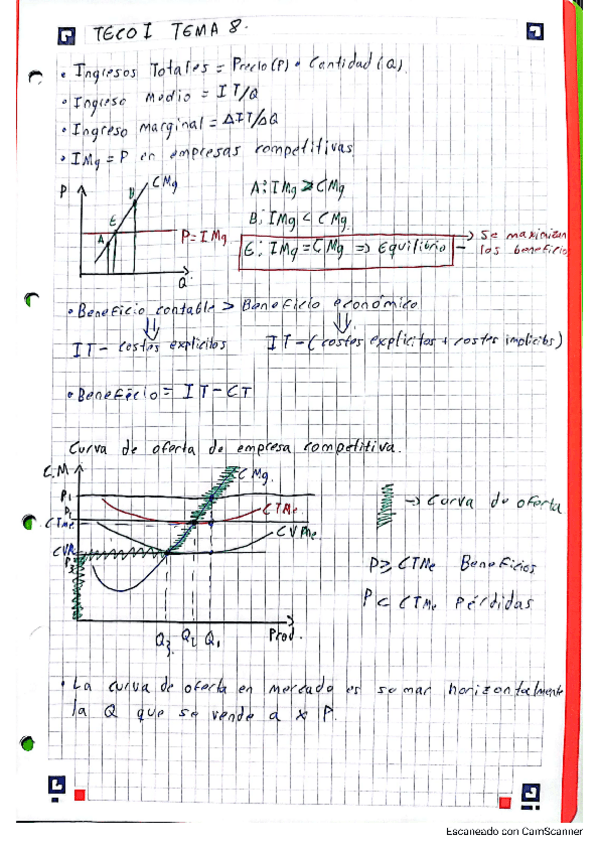 TECO I TEMA 8.
• Ingresos Totales = Precio (P) • Cantidad (Q).
• Ingreso medio = IT/Q
• Ingreso marginal = ΔIT/ΔQ
• IMg = P en empresas competitivas
P
CMg
B
E
A
P=IMg
Q
A: IMg > CMg
B: IMg < CMg
E: IMg = CMg => Equilibrio → Se maximizan los beneficio
• Beneficio contable > Beneficio económico
IT - costes explícitos
IT - (costes explícitos + costes implícitos)
• Beneficio = IT - CT
Curva de oferta de empresa competitiva.
C.M
CMg.
P1
P2
CTMe
CTMe
CVMe
P3
Q3 Q2 Q1 Prod.
→ Curva de oferta
P≥ CTMe Beneficios
P < CTMe Pérdidas
• La curva de oferta en mercado es sumar horizontalmente
la Q que se vende a x P.
Escaneado con CamScanner